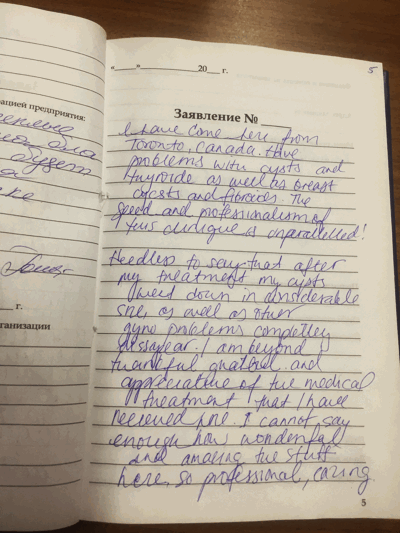 5
"____"____________20___ г.
Заявление № ______
I have come here from
Toronto, Canada. Have
problems with cysts and
thyroide as well as breast
cycsts and fibroids. The
speed and professionalism of
this clinique is unparallelled!
Needless to say that after
my treatment my cysts
went down in considerable
size, as well as other
gyno problems completley
dissapear. I am beyond
thankful greatfull and
appreciative of the medical
treatment that I have
recieved here. I cannot say
enough how wonderful
and amazing the stuff
here, so professional, caring
5
ацией предприятия:
будет
г.
ганизации